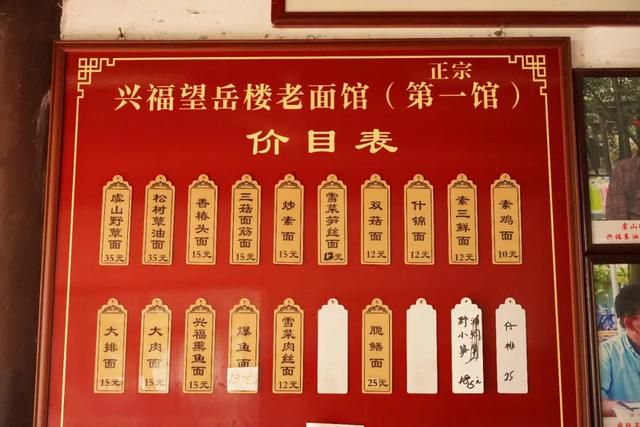 正宗
兴福望岳楼老面馆（第一馆）
价目表
虞山野蕈面 35元
松树蕈油面 35元
香椿头面 15元
三菇面筋面 15元
炒素面 15元
雪菜笋丝面
双菇面 12元
什锦面 12元
素三鲜面 12元
素鸡面 10元
大排面 15元
大肉面 15元
兴福熏鱼面 15元
爆鱼面 13元
雪菜肉丝面 12元
脆鳝面 25元
野小笋
仔排 25
虞山
兴福蕈油